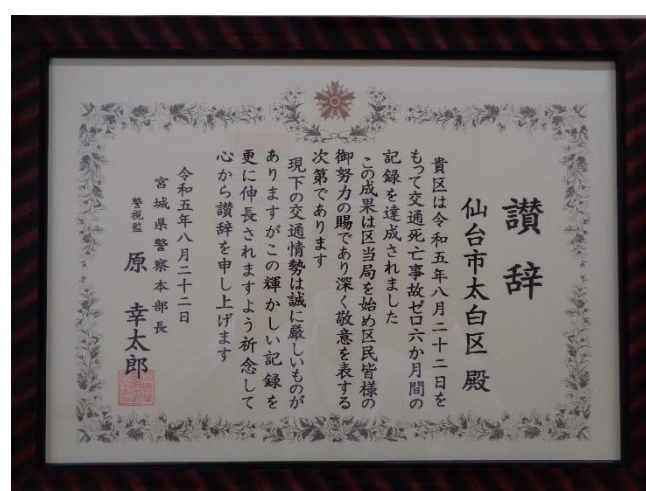 讃辞
仙台市太白区 殿
貴区は令和五年八月二十二日を
もって交通死亡事故ゼロ六か月間の
記録を達成されました
この成果は区当局を始め区民皆様の
御努力の賜であり深く敬意を表する
次第であります
現下の交通情勢は誠に厳しいものが
ありますがこの輝かしい記録を
更に伸長されますよう祈念して
心から讃辞を申し上げます
令和五年八月二十二日
宮城県警察本部長
警視監 原 幸太郎